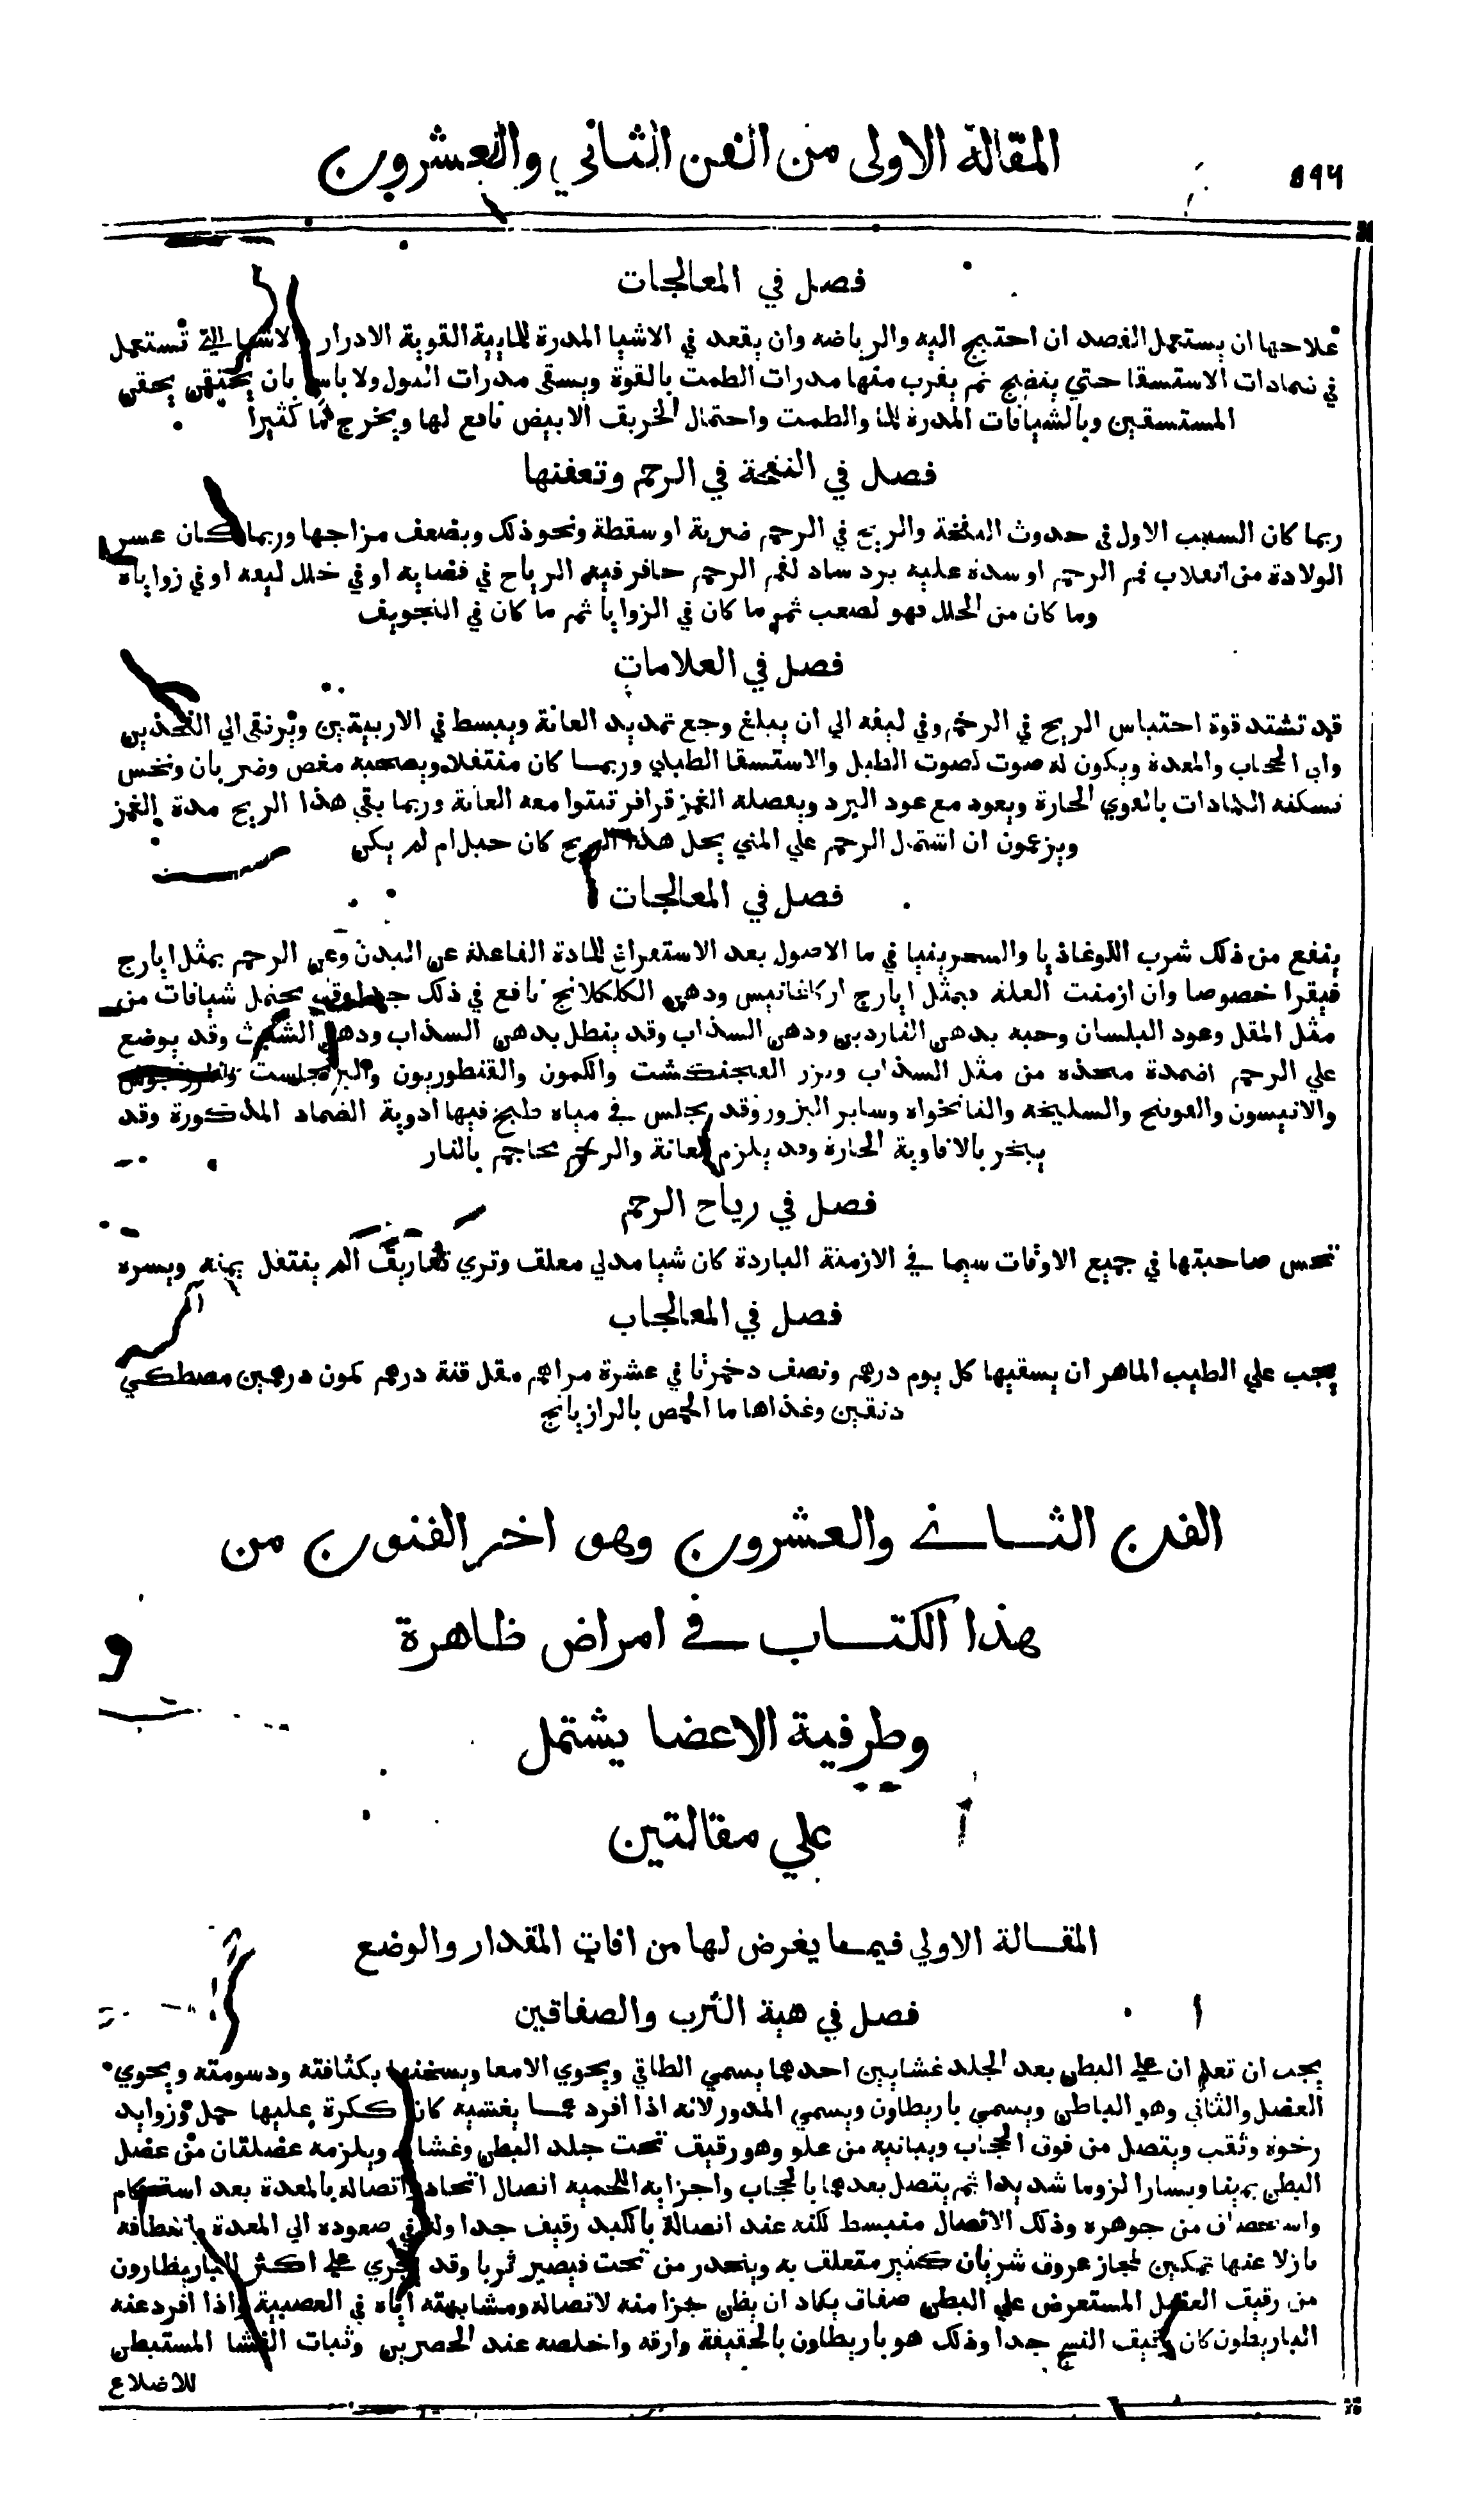 ٥٩٦ المقالة الاولى من الفن الثاني والعشرون
فصل في المعالجات
علاجها ان يستعمل الفصد ان احتيج اليه والرياضه وان يقعد في الاشيا المدرة للمايية القوية الادرار والاشيا التي تستعمل
في ضمادات الاستسقا حتي ينضج ثم يقرب منها مدرات الطمث بالقوة ويسقى مدرات البول ولا باس بان يحتقن بحقن
المستسقين وبالشيافات المدرة للما والطمث واحتمال الخربق الابيض نافع لها ويخرج لها كثيرا
فصل في النفخة في الرحم وتعفنها
ربما كان السبب الاول في حدوث النفخة والريح في الرحم ضربة او سقطة ونحو ذلك وبضعف مزاجها وربما كان عسر
الولادة من انقلاب فم الرحم او سدة عليه برد ساد لفم الرحم حافر فيه الرياح في فضايه او في خلل ليفه او في زواياه
وما كان من الخلل فهو لصعب ثم ما كان في الزوايا ثم ما كان في التجويف
فصل في العلامات
قد تشتد قوة احتباس الريح في الرحم وفي ليفه الي ان يبلغ وجع تمديد العانة ويبسط في الاربيتين ويرتقى الي الفخذين
والي الحجاب والمعدة ويكون له صوت كصوت الطبل والاستسقا الطبلي وربما كان منتقلا ويصحبه مغص وضربان ونخس
تسكنه الكمادات بالقوي الحارة ويعود مع عود البرد ويفصله الغمز قرافر تنتوا معه العانة وربما بقي هذا الريح مدة الغمز
ويزعمون ان اشتمال الرحم علي المني يحل هذا الريح كان حبل ام لم يكن
فصل في المعالجات
ينفع من ذلك شرب اللوغاذيا والسجرينيا في ما الاصول بعد الاستفراغ للمادة الفاعلة عن البدن وعن الرحم بمثل ايارج
فيقرا خصوصا وان ازمنت العلة فبمثل ايارج اركاغانيس ودهن الكلكلانج نافع في ذلك جدا وقد يحتمل شيافات من
مثل المقل وعود البلسان وحبه بدهن الناردين ودهن السذاب وقد ينطل بدهن السذاب ودهن الشبث وقد يوضع
علي الرحم اضمدة متخذه من مثل السذاب وبزر الفنجنكشت والكمون والقنطوريون والبرنجاست والمرزنجوش
والانيسون والفوتنج والسليخه والنانخواه وساير البزور وقد يجلس في مياه طبخ فيها ادوية الضماد المذكورة وقد
يبخر بالافاوية الحارة وقد يلزم العانة والرحم محاجم بالنار
فصل في رياح الرحم
تحس صاحبتها في جميع الاوقات سيما في الازمنة الباردة كان شيا مدلي معلق وتري تفاريق الم ينتقل يمنه ويسره
فصل في المعالجاب
يجب علي الطبيب الماهر ان يسقيها كل يوم درهم ونصف دخمرثا في عشرة مراهم مقل قنة درهم كمون درهمين مصطكي
دنقين وغذاها ما الحمص بالرازيانج
الفن الثاني والعشرون وهو اخر الفنون من
هذا الكتاب في امراض ظاهرة
وطرفية الاعضا يشتمل
علي مقالتين
المقالة الاولي فيما يغرض لها من افات المقدار والوضع
فصل في هية الثرب والصفاقين
يجب ان تعلم ان علي البطن بعد الجلد غشايين احدهما يسمي الطافي ويحوي الامعا ويسخنها بكثافته ودسومته ويحوي
العضل والثاني وهو الباطن ويسمي باريطاون ويسمي المدور لانه اذا افرد عما يغشيه كان ككرة عليها حمل وزوايد
رخوة وثقب ويتصل من فوق الحجاب ويباينه من علو وهو رقيق تحت جلد البطن وغشا ويلزمه عضلتان من عضل
البطن يمينا ويسارا لزوما شديدا ثم يتصل بعدها بالحجاب واجزايه اللحميه اتصال اتحاد واتصاله بالمعدة بعد استحكام
واستحصاف من جوهره وذلك الاتصال منبسط لكنه عند اتصاله بالكبد رقيق جدا وله في صعوده الي المعدة وانعطافه
نازلا عنها تمكين لمجاز عروق شريان كثير متعلق به وينحدر من تحت فيصير ثربا وقد يجري علي اكثر الباريطارون
من رقيق العضل المستعرض علي البطن صفاق يكاد ان يظن جزا منه لاتصاله ومشابهته اياه في العصبية واذا افرد عنه
الباريطون كان رقيق النسج جدا وذلك هو باريطاون بالحقيقة وارقه واخلصه عند الخصرين وثبات الغشا المستبطن
للاضلاع